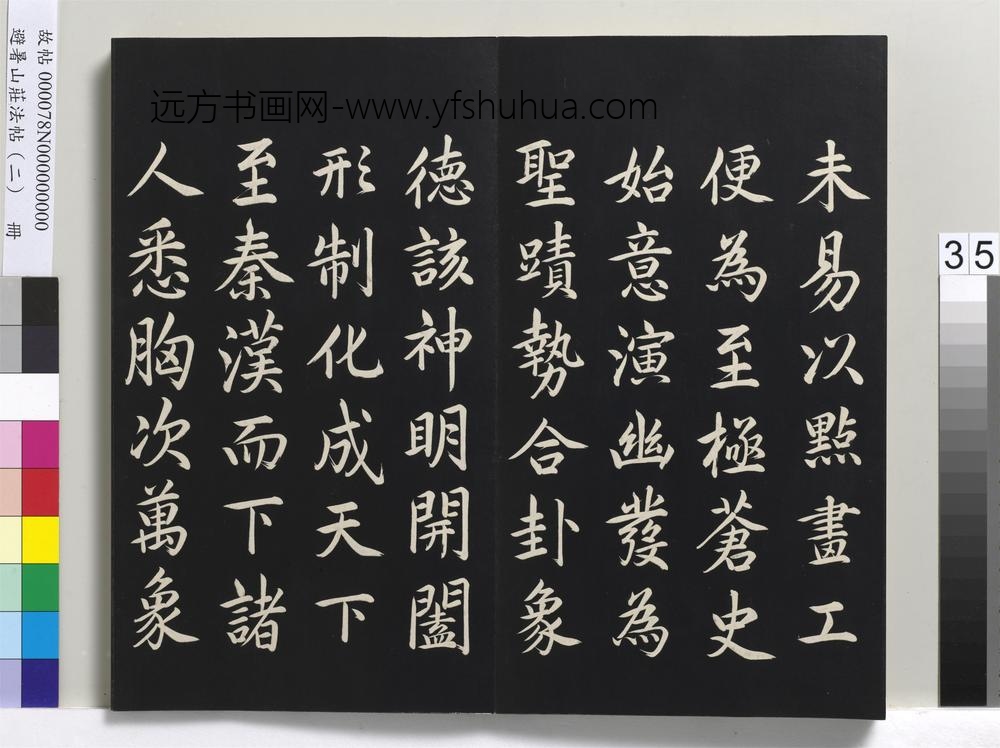 故帖 000078N000000000
避暑山莊法帖(二) 冊
远方书画网-www.yfshuhua.com
35
未易以點畫工
便為至極蒼史
始意演幽發為
聖蹟勢合卦象
德該神明開闔
形制化成天下
至秦漢而下諸
人悉胸次萬象